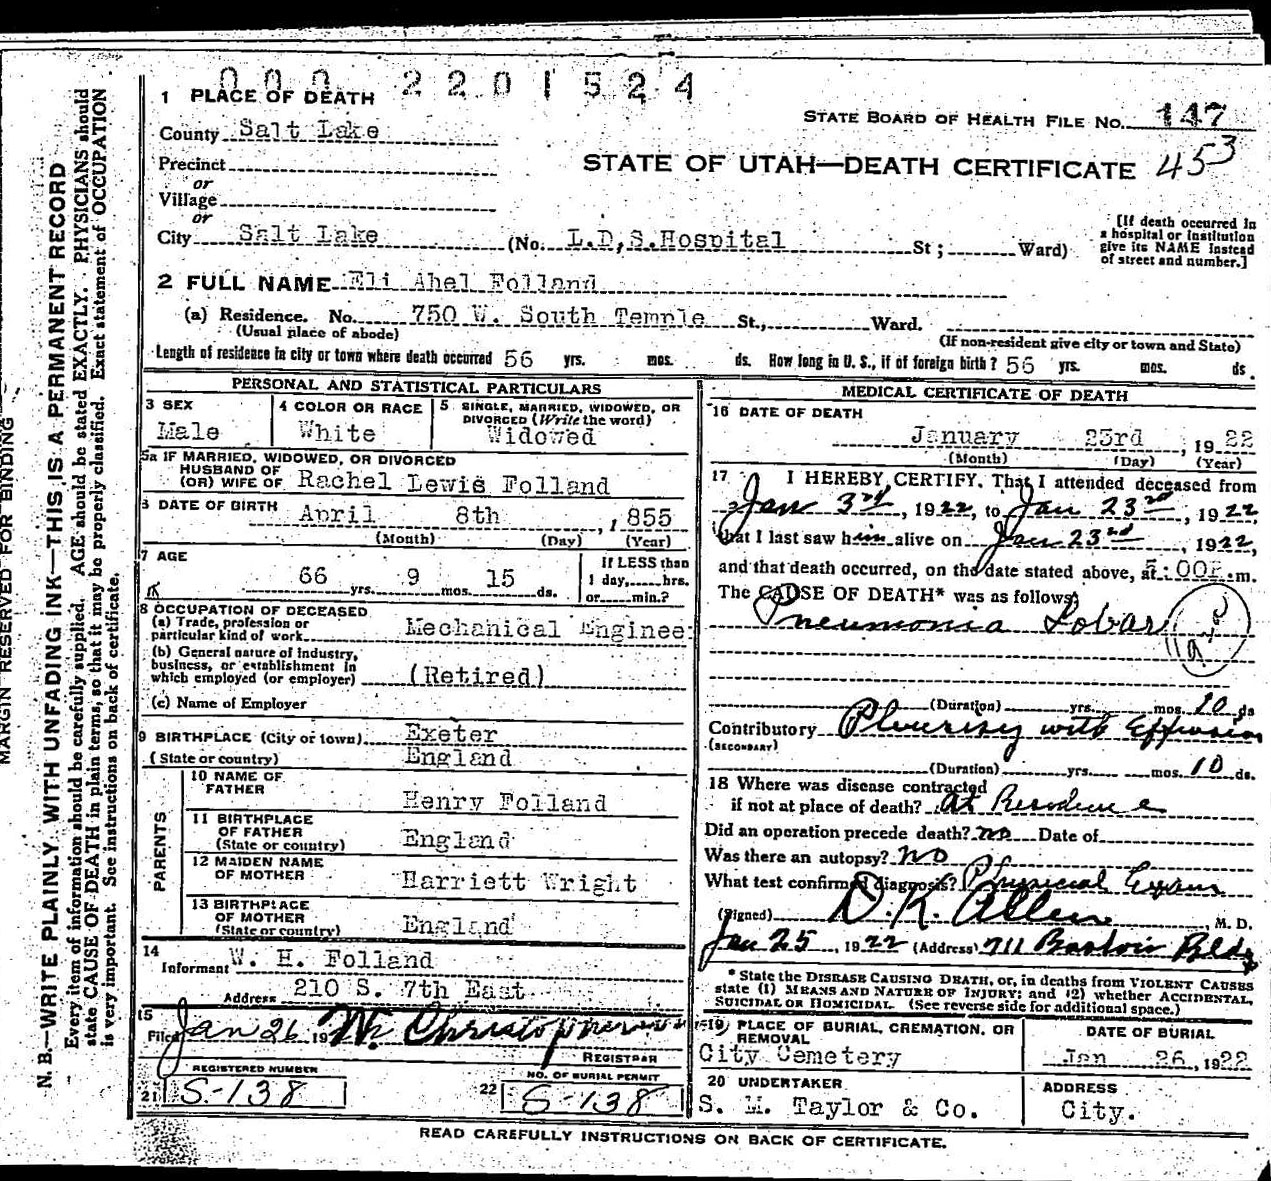 000 2201524
1 PLACE OF DEATH
STATE BOARD OF HEALTH FILE NO. 147
County Salt Lake
STATE OF UTAH—DEATH CERTIFICATE 453
Precinct
or
Village
or
City Salt Lake (No. L.D,S.Hospital St; Ward)
[If death occurred in a hospital or institution give its NAME instead of street and number.]
2 FULL NAME Eli Abel Folland
(a) Residence. No. 750 W. South Temple St., Ward.
(Usual place of abode) (If non-resident give city or town and State)
Length of residence in city or town where death occurred 56 yrs. mos. ds. How long in U. S., if of foreign birth? 56 yrs. mos. ds.
PERSONAL AND STATISTICAL PARTICULARS
3 SEX
Male
4 COLOR OR RACE
White
5 SINGLE, MARRIED, WIDOWED, OR DIVORCED (Write the word)
Widowed
5a IF MARRIED, WIDOWED, OR DIVORCED
HUSBAND OF
(OR) WIFE OF Rachel Lewis Folland
6 DATE OF BIRTH April 8th, 1855
(Month) (Day) (Year)
7 AGE
66 yrs. 9 mos. 15 ds.
If LESS than
1 day, hrs.
or min.?
8 OCCUPATION OF DECEASED
(a) Trade, profession or
particular kind of work Mechanical Enginee
(b) General nature of industry,
business, or establishment in
which employed (or employer) (Retired)
(c) Name of Employer
9 BIRTHPLACE (City or town) Exeter
(State or country) England
PARENTS
10 NAME OF FATHER
Henry Folland
11 BIRTHPLACE OF FATHER
(State or country) England
12 MAIDEN NAME OF MOTHER
Harriett Wright
13 BIRTHPLACE OF MOTHER
(State or country) England
14
Informant W. H. Folland
Address 210 S. 7th East
15
Filed Jan 26 19 W. Christopherson
REGISTRAR
REGISTERED NUMBER
21 S-138
NO. OF BURIAL PERMIT
22 S-138
MEDICAL CERTIFICATE OF DEATH
16 DATE OF DEATH
January 23rd, 1922
(Month) (Day) (Year)
17 I HEREBY CERTIFY, That I attended deceased from
Jan 3rd, 1922, to Jan 23rd, 1922,
that I last saw him alive on Jan 23rd, 1922,
and that death occurred, on the date stated above, at 5:00P.m.
The CAUSE OF DEATH* was as follows:
Pneumonia Lobar
(Duration) yrs. mos. 10 ds
Contributory Pleurisy with Effusion
(SECONDARY)
(Duration) yrs. mos. 10 ds.
18 Where was disease contracted
if not at place of death? At Residence
Did an operation precede death? no Date of
Was there an autopsy? no
What test confirmed diagnosis? Physical Exam
(Signed) D. K. Allen, M. D.
Jan 25, 1922 (Address) 711 Boston Bldg
* State the DISEASE CAUSING DEATH, or, in deaths from VIOLENT CAUSES
state (1) MEANS AND NATURE OF INJURY; and (2) whether ACCIDENTAL,
SUICIDAL OR HOMICIDAL. (See reverse side for additional space.)
19 PLACE OF BURIAL, CREMATION, OR REMOVAL
City Cemetery
DATE OF BURIAL
Jan 26, 1922
20 UNDERTAKER
S. M. Taylor & Co.
ADDRESS
City.
READ CAREFULLY INSTRUCTIONS ON BACK OF CERTIFICATE.
MARGIN RESERVED FOR BINDING
N. B.—WRITE PLAINLY, WITH UNFADING INK—THIS IS A PERMANENT RECORD
Every item of information should be carefully supplied. AGE should be stated EXACTLY. PHYSICIANS should
state CAUSE OF DEATH in plain terms, so that it may be properly classified. Exact statement of OCCUPATION
is very important. See instructions on back of certificate.